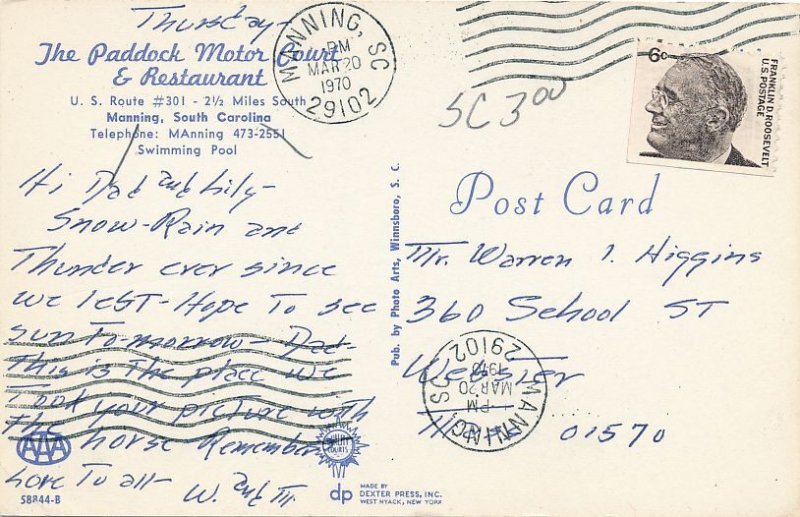 Thursday-
The Paddock Motor Court
& Restaurant
U. S. Route #301 - 2½ Miles South
Manning, South Carolina
Telephone: MAnning 473-2551
Swimming Pool
Hi Dad and Lily-
Snow-Rain and
Thunder ever since
we left-Hope To see
sun Tomorrow- Dad-
This is The place we
Took your picture with
The horse Remember
Love To all-
W. and M.
AAA
58844-B
Pub. by Photo Arts, Winnsboro, S. C.
QUALITY COURTS
dp
MADE BY
DEXTER PRESS, INC.
WEST NYACK, NEW YORK
MANNING, SC
PM
MAR 20
1970
29102
SC 3 00
6c
FRANKLIN D. ROOSEVELT
U.S. POSTAGE
Post Card
Mr. Warren I. Higgins
360 School ST
Webster
01570
MANNING, SC
PM
MAR 20
1970
29102